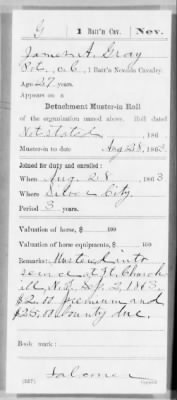 G | 1 Batt'n Cav. | Nev.
James A. Gray
Pvt., Co. C, 1 Batt'n Nevada Cavalry.
Age 27 years.
Appears on a
Detachment Muster-in Roll
of the organization named above. Roll dated
Not stated, 186 .
Muster-in to date Aug 28, 1863.
Joined for duty and enrolled:
When Aug. 28, 1863
Where Silver City.
Period 3 years.
Valuation of horse, $ 100
Valuation of horse equipments, $ 100
Remarks: Mustered into
service at Ft. Church
ill, N.T. Sep. 2, 1863.
$2.00 premium and
$25.00 bounty due.
Book mark:
Falconer
(357) Copyist.